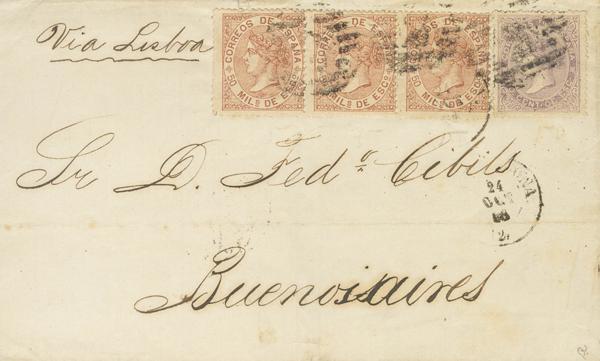 Via Lisboa
CORREOS DE ESPAÑA
50 MIL.s DE ESC.o
CORREOS DE ESPAÑA
50 MIL.s DE ESC.o
CORREOS DE ESPAÑA
50 MIL.s DE ESC.o
Sr. D. Fed.o Cibils
24
OCT
68
Buenosaires